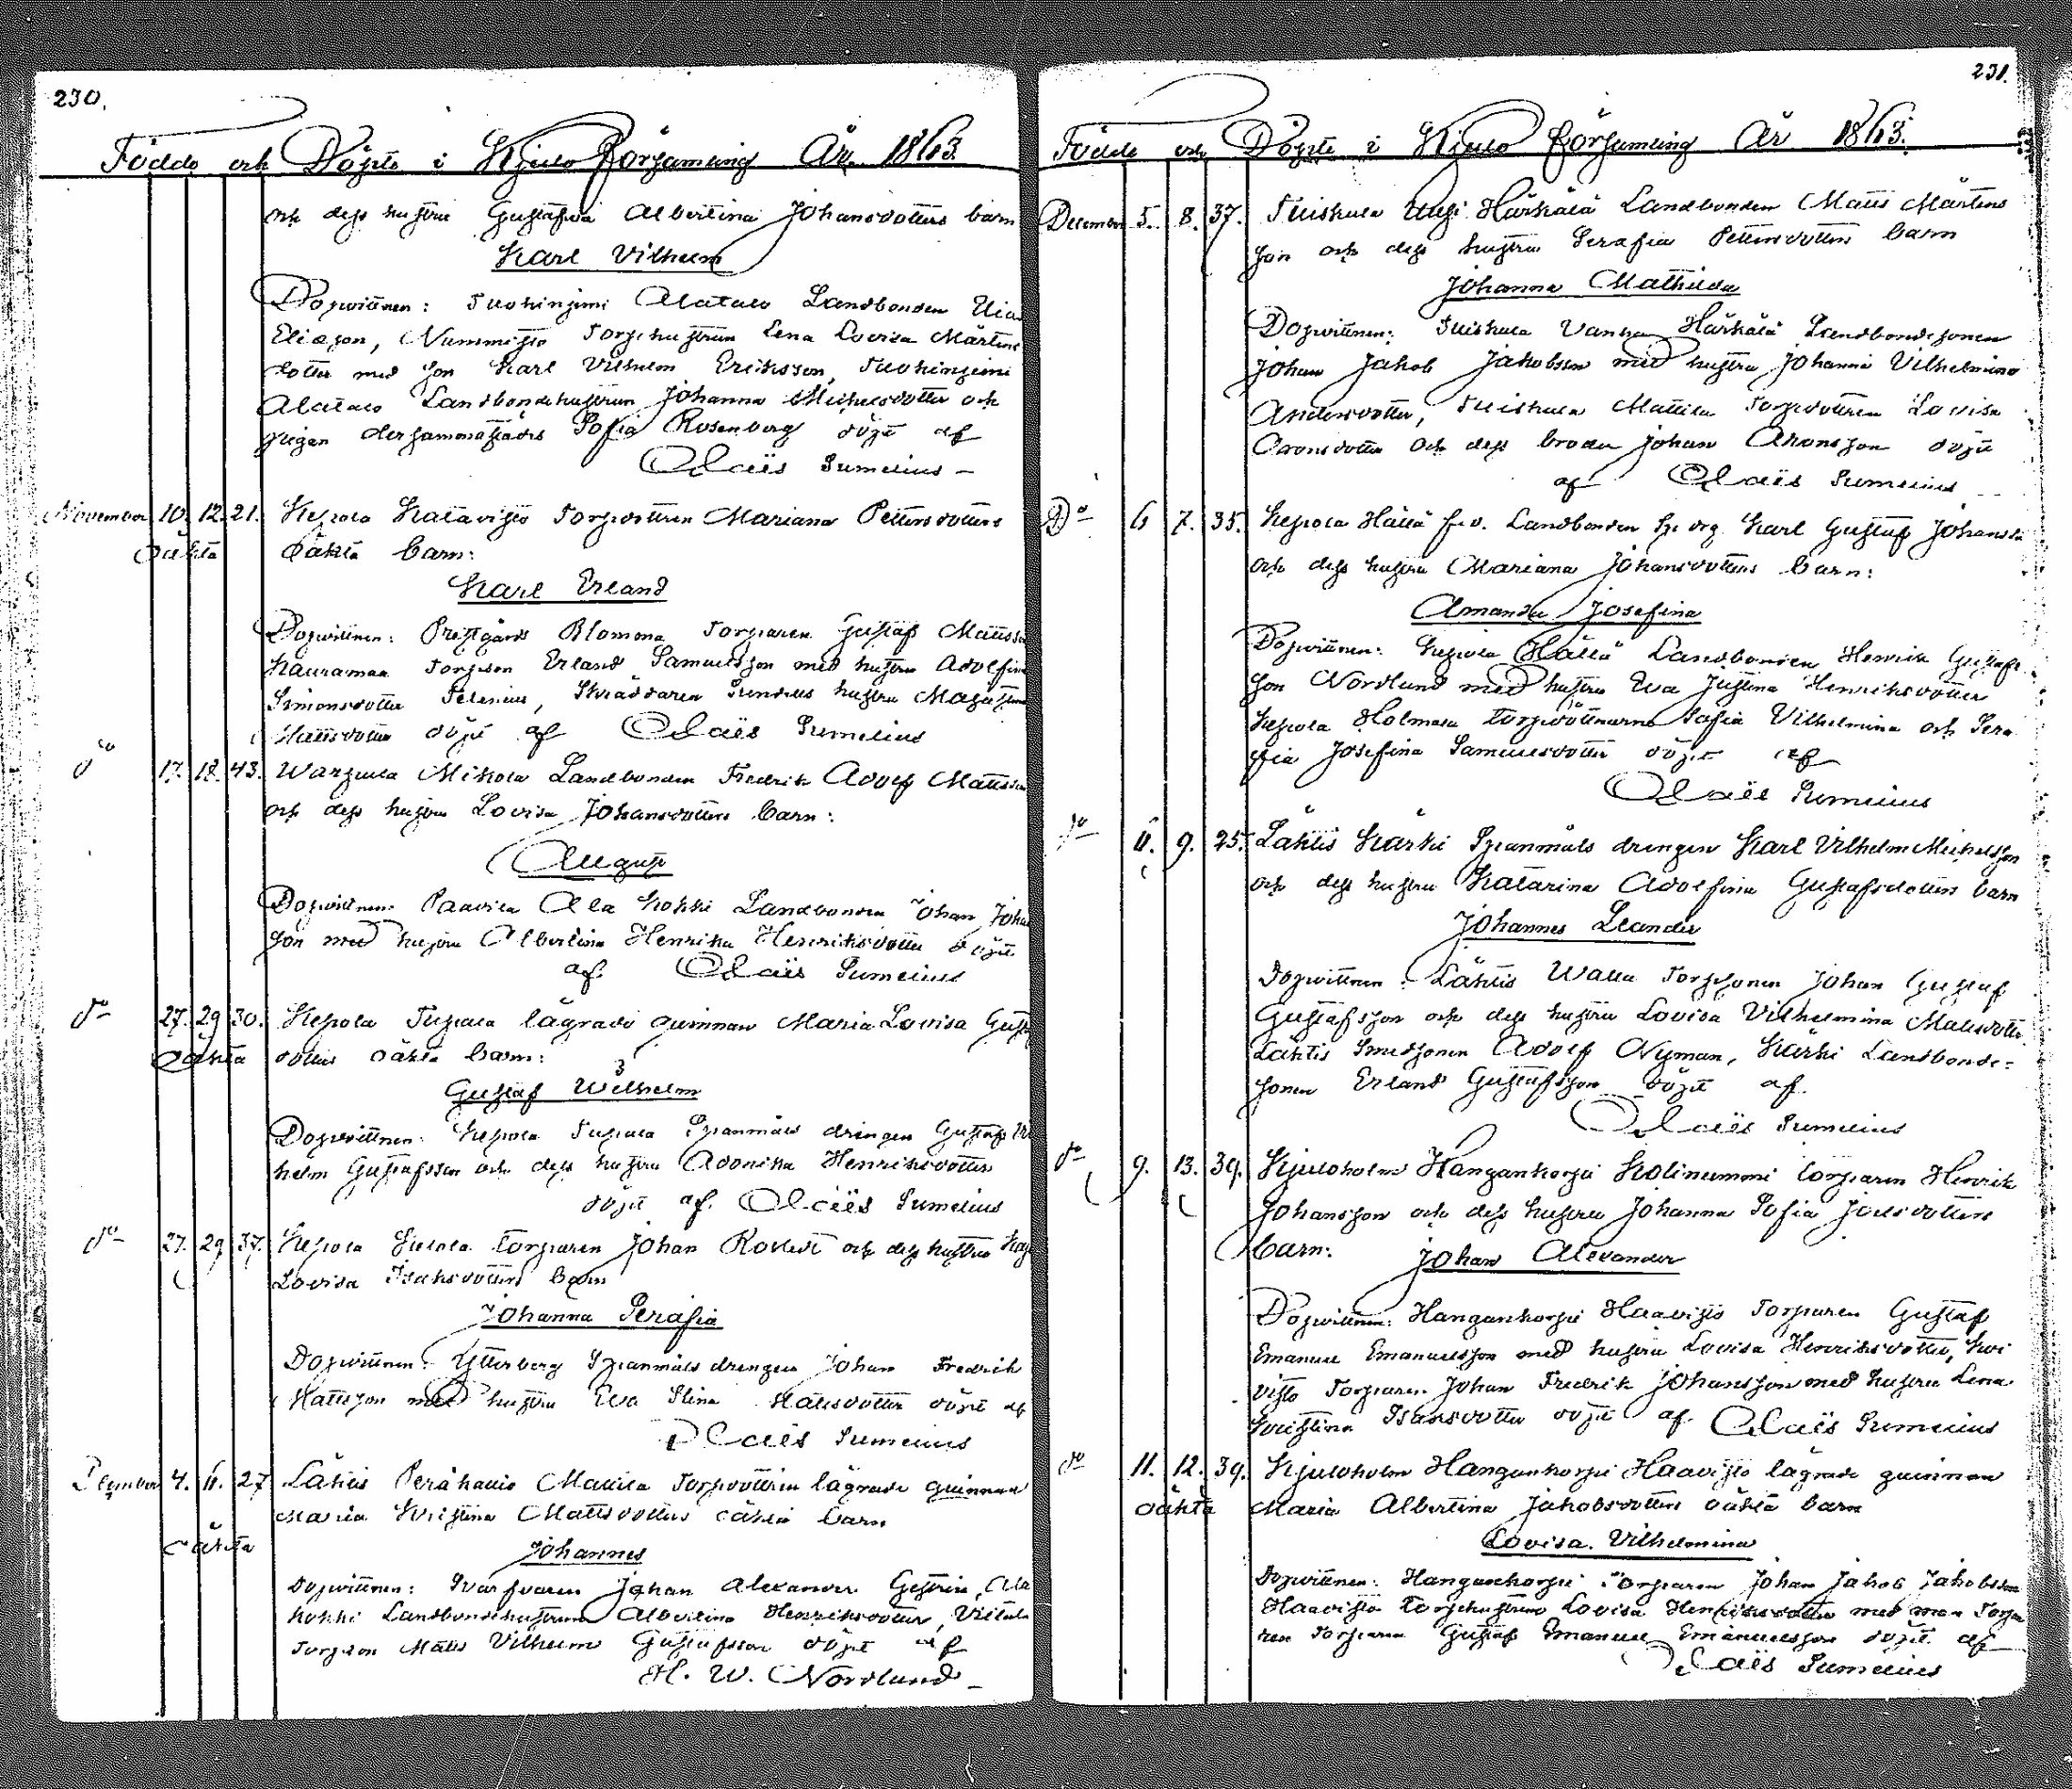 230.
Födde och Döpte i Kjulo Församling År 1863.
och dess hustru Gustafva Albertina Johansdotters barn
Karl Vilhelm
Dopvittnen: Tuohiniemi Alatalo Landbonden Elias
Eliasson, Nummisto Torphustrun Lena Lovisa Mårtens
dotter med son Karl Vilhelm Eriksson, Tuohiniemi
Alatalo Landbondehustrun Johanna Michelsdotter och
pigan dersammastädes Sofia Rosenberg döpt af
Olaus Sumelius
November 10. 12. 21. Kepola Katavisto Torpdottren Mariana Pettersdotters
Oäkta oäkta barn:
Karl Erland
Dopvittnen: Prestgårds Blomma Torparen Gustaf Matsson
Kauraman Torpson Erland Samuelsson med hustru Adolfina
Simonsdotter Selenius, Skräddaren hustru
Mattsdotter döpt af Olaus Sumelius
do 17. 18. 43. Mikola Landbonden Fredrik Adolf Mattsson
och dess hustru Lovisa Johansdotters barn:
August
Dopvittnen: Paavila Ala Kokki Landbonden Johan Johan
son med hustru Albertina Henrika Henriksdotter döpt
af. Olaus Sumelius
do 27. 29 30. Kepola lägrade quinnan Maria Lovisa Gust
oäkta dotters oäkta barn:
Gustaf Wilhelm
Dopvittnen: Kepola Spanmåls drengen Gustaf Vil
helm Gustafsson och dess hustru Adonika Henriksdotter
döpt af. Olaus Sumelius
do 27. 29 37. Kepola Torparen Johan och dess hustru
Lovisa Isaksdotters barn
Johanna Serafia
Dopvittnen: Ytterberg Spanmåls drengen Johan Fredrik
Mattsson med hustru Eva Stina Matsdotter döpt af
Olaus Sumelius
December 4. 6. 27 Lähtis Peräkallio Mattila Torpdottren lägrade quinnan
oäkta Maria Kristina Mattsdotters oäkta barn
Johannes
Dopvittnen: Johan Alexander Ala
kokki Landbondehustrun Albertina Henriksdotter,
Torpson Mats Vilhelm Gustafsson döpt af
H. W. Nordlund
231.
Födde och Döpte i Kjulo Församling År 1863.
December 5. 8. 37. Tuiskula Uusi Härkälä Landbonden Matts Mårtens
son och dess hustru Serafia Pettersdotters barn
Johanna Mathilda
Dopvittnen: Tuiskula Vanha Härkälä Landbondesonen
Johan Jakob Jakobsson med hustru Johanna Vilhelmina
Andersdotter, Tuiskula Mattila Torpdottren Lovisa
Aronsdotter och dess broder Johan Aronsson döpt
af Olaus Sumelius
Do 6 7. 35. Kepola Hällä f.d. Landbonden Karl Gustaf Johansson
och dess hustru Mariana Johansdotters barn:
Amanda Josefina
Dopvittnen: Kepola Hällä Landbonden Henrik Gustafs
son Nordlund med hustru Eva Justina Henriksdotter
Kepola Holmala Torpdöttrarne Sofia Vilhelmina och Sera
fia Josefina Samuelsdotter döpt af
Olaus Sumelius
do 6. 9. 25. Lähtis Kärki Spanmåls drengen Karl Vilhelm Michelsson
och dess hustru Katarina Adolfina Gustafsdotters barn
Johannes Leander
Dopvittnen: Lähtis Torpsonen Johan Gustaf
Gustafsson och dess hustru Lovisa Vilhelmina Matsdotter
Lähtis Smedsonen Adolf Nyman, Kärki Landbonde-
sonen Erland Gustafsson döpt af.
Olaus Sumelius
do 9. 13. 39. Kjuloholm Hangankorpi Kolinummi torparen Henrik
Johansson och dess hustru Johanna Sofia Joelsdotters
barn: Johan Alexander
Dopvittnen: Hangankorpi Haavisto Torparen Gustaf
Emanuel Emanuelsson med hustru Lovisa Henriksdotter, Koi
visto Torparen Johan Fredrik Johansson med hustru Lena
Kristina Isaksdotter döpt af Olaus Sumelius
do 11. 12. 39. Kjuloholm Hangankorpi Haavisto lägrade quinnan
oäkta Maria Albertina Jakobsdotters oäkta barn
Lovisa Vilhelmina
Dopvittnen: Hangankorpi Torparen Johan Jakob Jakobsson
Haavisto torphustrun Lovisa Henriksdotter med man Torpa
ren Torparen Gustaf Emanuel Emanuelsson döpt af
Olaus Sumelius